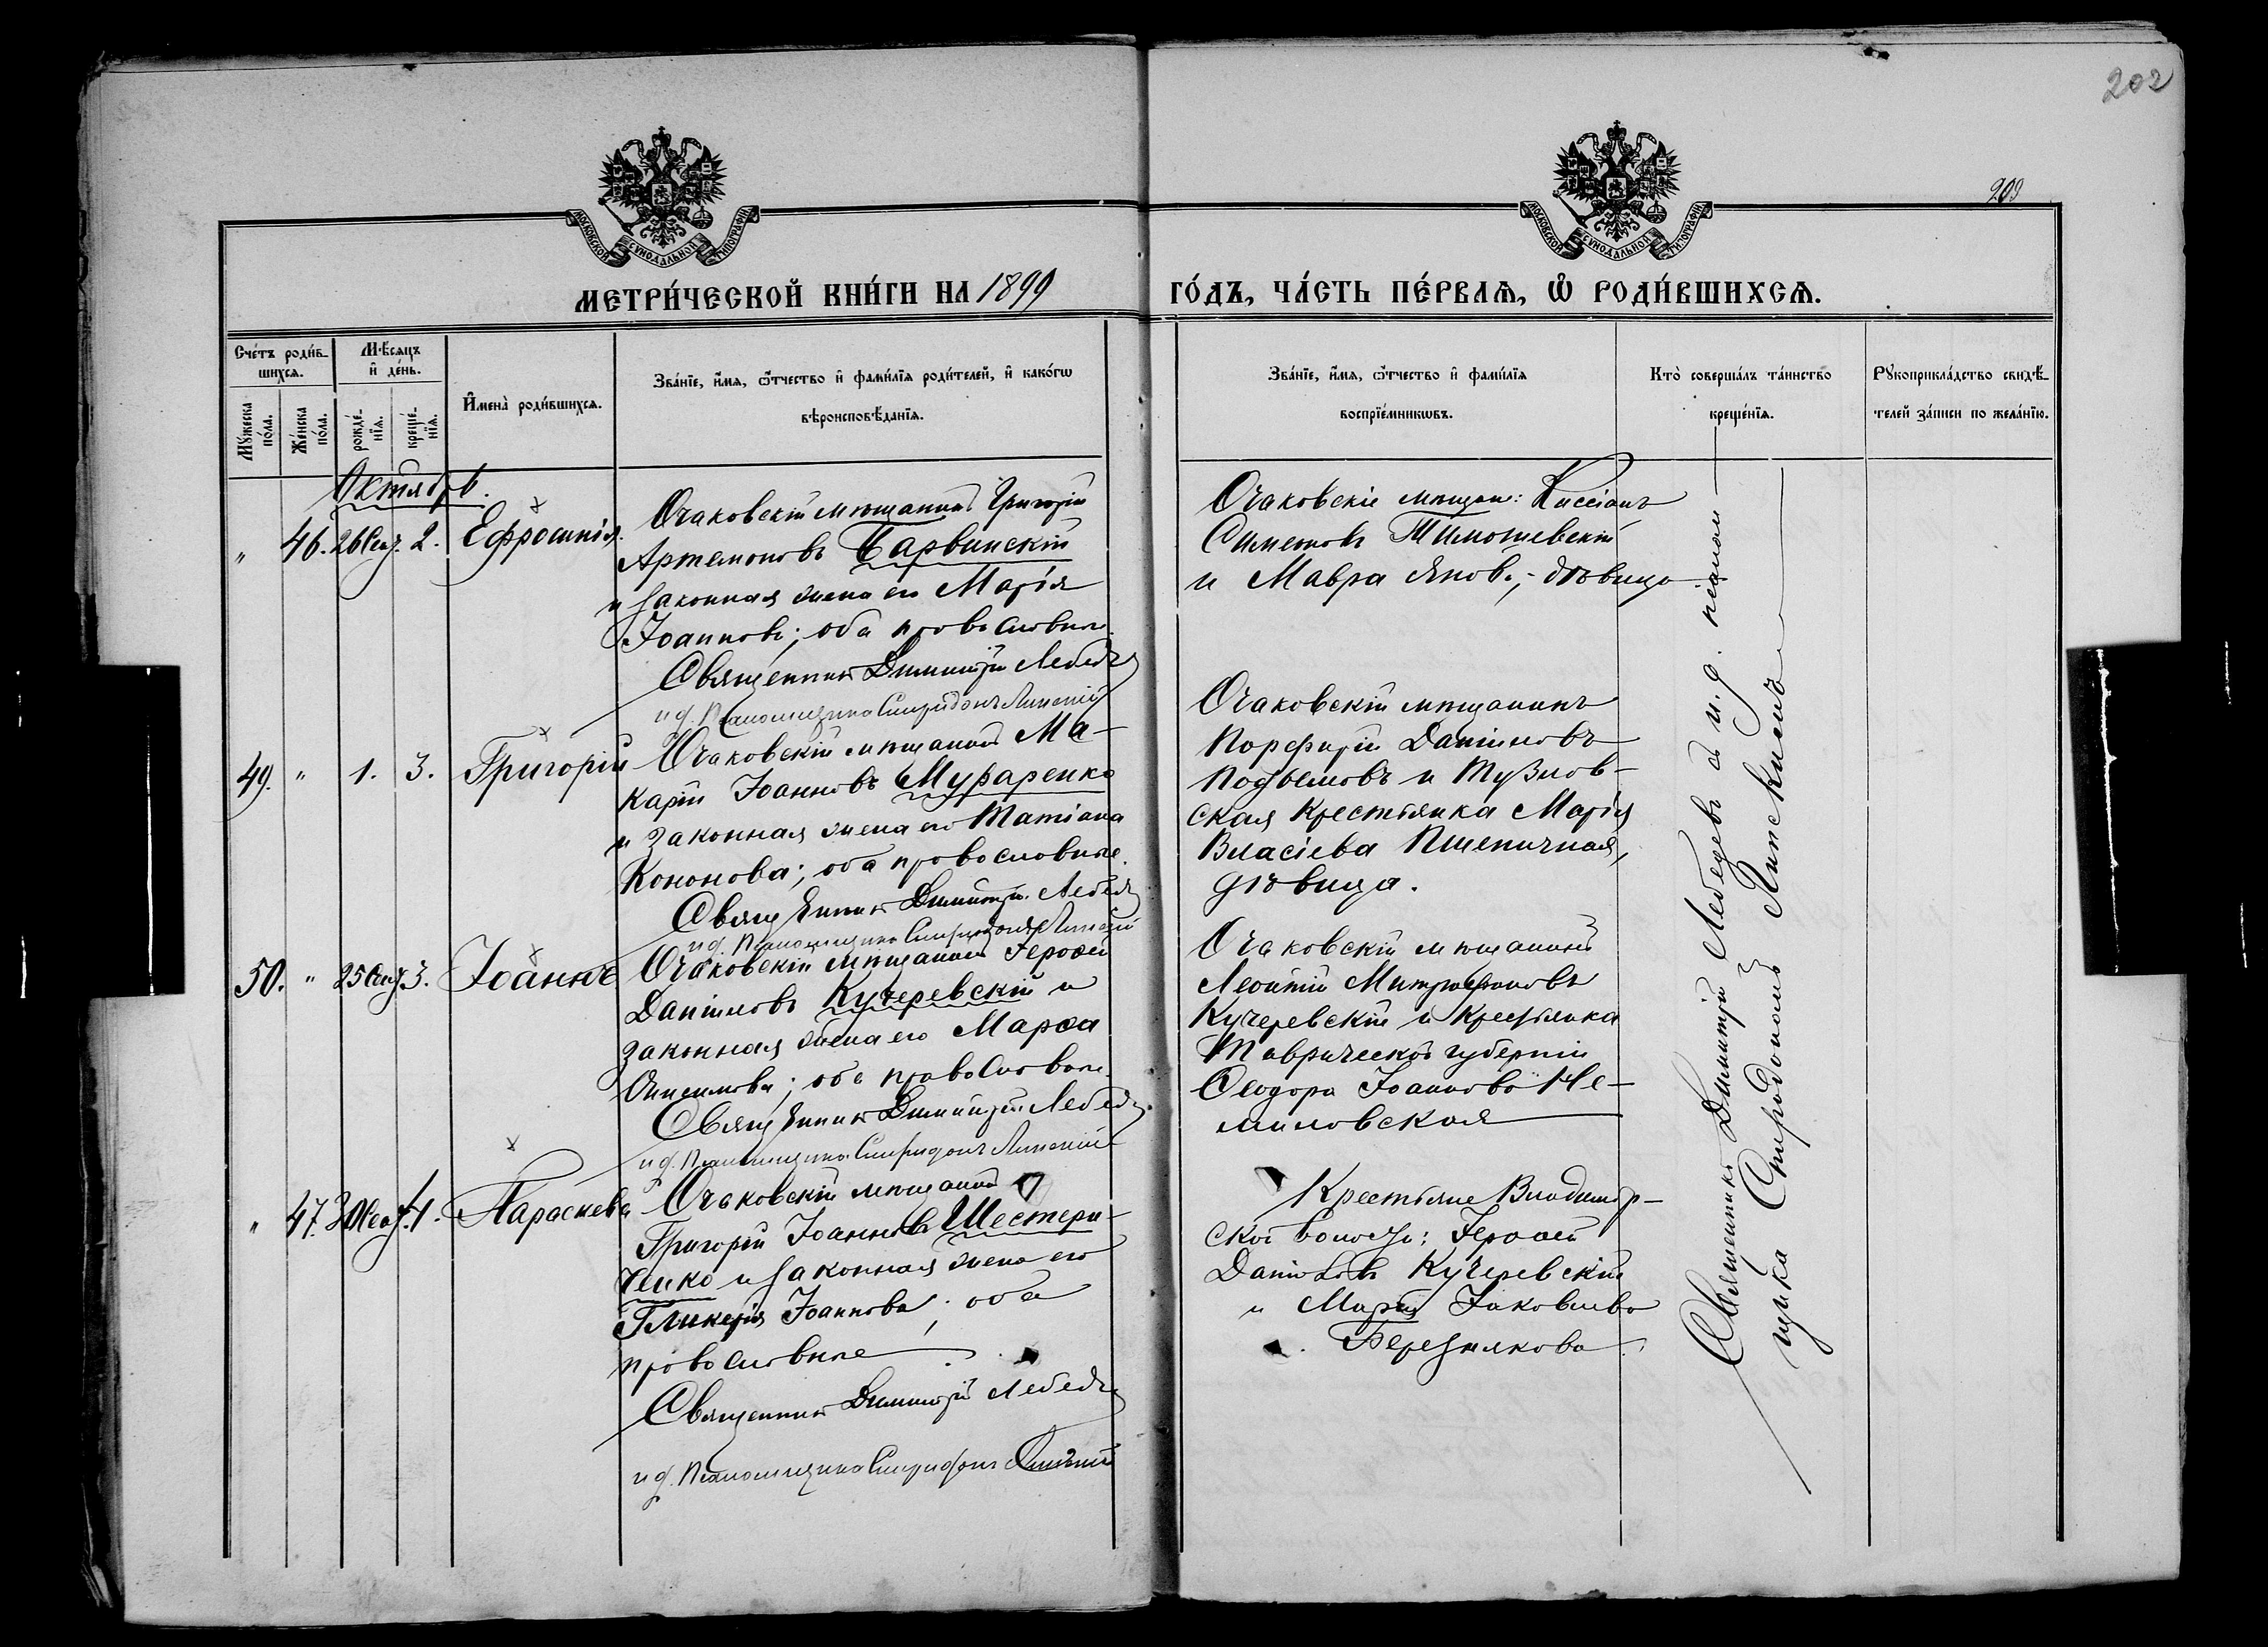 202
203
МОСКОВСКОЙ СѴНОДАЛЬНОЙ ТИПОГРАФІИ
МОСКОВСКОЙ СѴНОДАЛЬНОЙ ТИПОГРАФІИ
МЕТРИ́ЧЕСКОЙ КНИ́ГИ НА 1899
ГО́ДЪ, ЧА́СТЬ ПЕ́РВАѦ, Ѽ РОДИ́ВШИХСѦ.
Сче́тъ роди́в-
шихсѧ.
Мѣ́сѧцъ
и де́нь.
Мꙋ́жеска
по́ла.
Же́нска
по́ла.
рожде́-
нїѧ.
креще́-
нїѧ.
И҆мена̀ роди́вшихсѧ.
Зва́нїе, и҆́мѧ, ѻ҆́тчество и҆ фами́лїѧ роди́телей, и҆ како́гѡ
вѣроисповѣ́данїѧ.
Зва́нїе, и҆́мѧ, ѻ҆́тчество и҆ фами́лїѧ
воспрїе́мникѡвъ.
Кто̀ соверша́лъ та́инство
креще́нїѧ.
Рꙋкоприкла́дство свидѣ́-
телей за́писи по жела́нїю.
Октябрь.
" 46. 26 Сен. 2. Ефросинія.
Очаковскій мѣщанинъ Григорій
Артемоновъ Барвинскій
и законная жена его Марія
Іоаннова; оба православные.
Священникъ Димитрій Лебедевъ
и д. Псаломщика Спиридонъ Липскій
Очаковскіе мѣщане: Кассіанъ
Симеоновъ Тимошевскій
и Мавра Янов., дѣвица
49. " 1. 3. Григорій
Очаковскій мѣщанинъ Ма-
карій Іоанновъ Муфаренко
и законная жена его Татіана
Кононова; оба православные.
Священникъ Димитрій Лебедевъ
и д. Псаломщика Спиридонъ Липскій
Очаковскій мѣщанинъ
Порфирій Даніиловъ
Подъемовъ и Тузлов-
ская крестьянка Марія
Власіева Пшеничная,
дѣвица.
50. " 25 Сен. 3. Іоаннъ
Очаковскій мѣщанинъ Іероѳей
Даніиловъ Кучеревскій и
законная жена его Марѳа
Онисимова; оба православные.
Священникъ Димитрій Лебедевъ
и д. Псаломщика Спиридонъ Липскій
Очаковскій мѣщанинъ
Леонтій Митрофановъ
Кучеревскій и крестьянка
Таврической губерніи
Ѳеодора Іоаннова Не-
миловская
" 47. 30 Сен. 4. Параскева
Очаковскій мѣщанинъ
Григорій Іоанновъ Шестери-
ченко и законная жена его
Гликерія Іоаннова; оба
православные
Священникъ Димитрій Лебедевъ
и д. Псаломщика Спиридонъ Липскій
Крестьяне Владимір-
ской волости: Іероѳей
Даніиловъ Кучеревскій
и Марія Іаковлева
Березнякова.
Священникъ Димитрій Лебедевъ съ и. д. псалом-
щика Спиридономъ Липскимъ